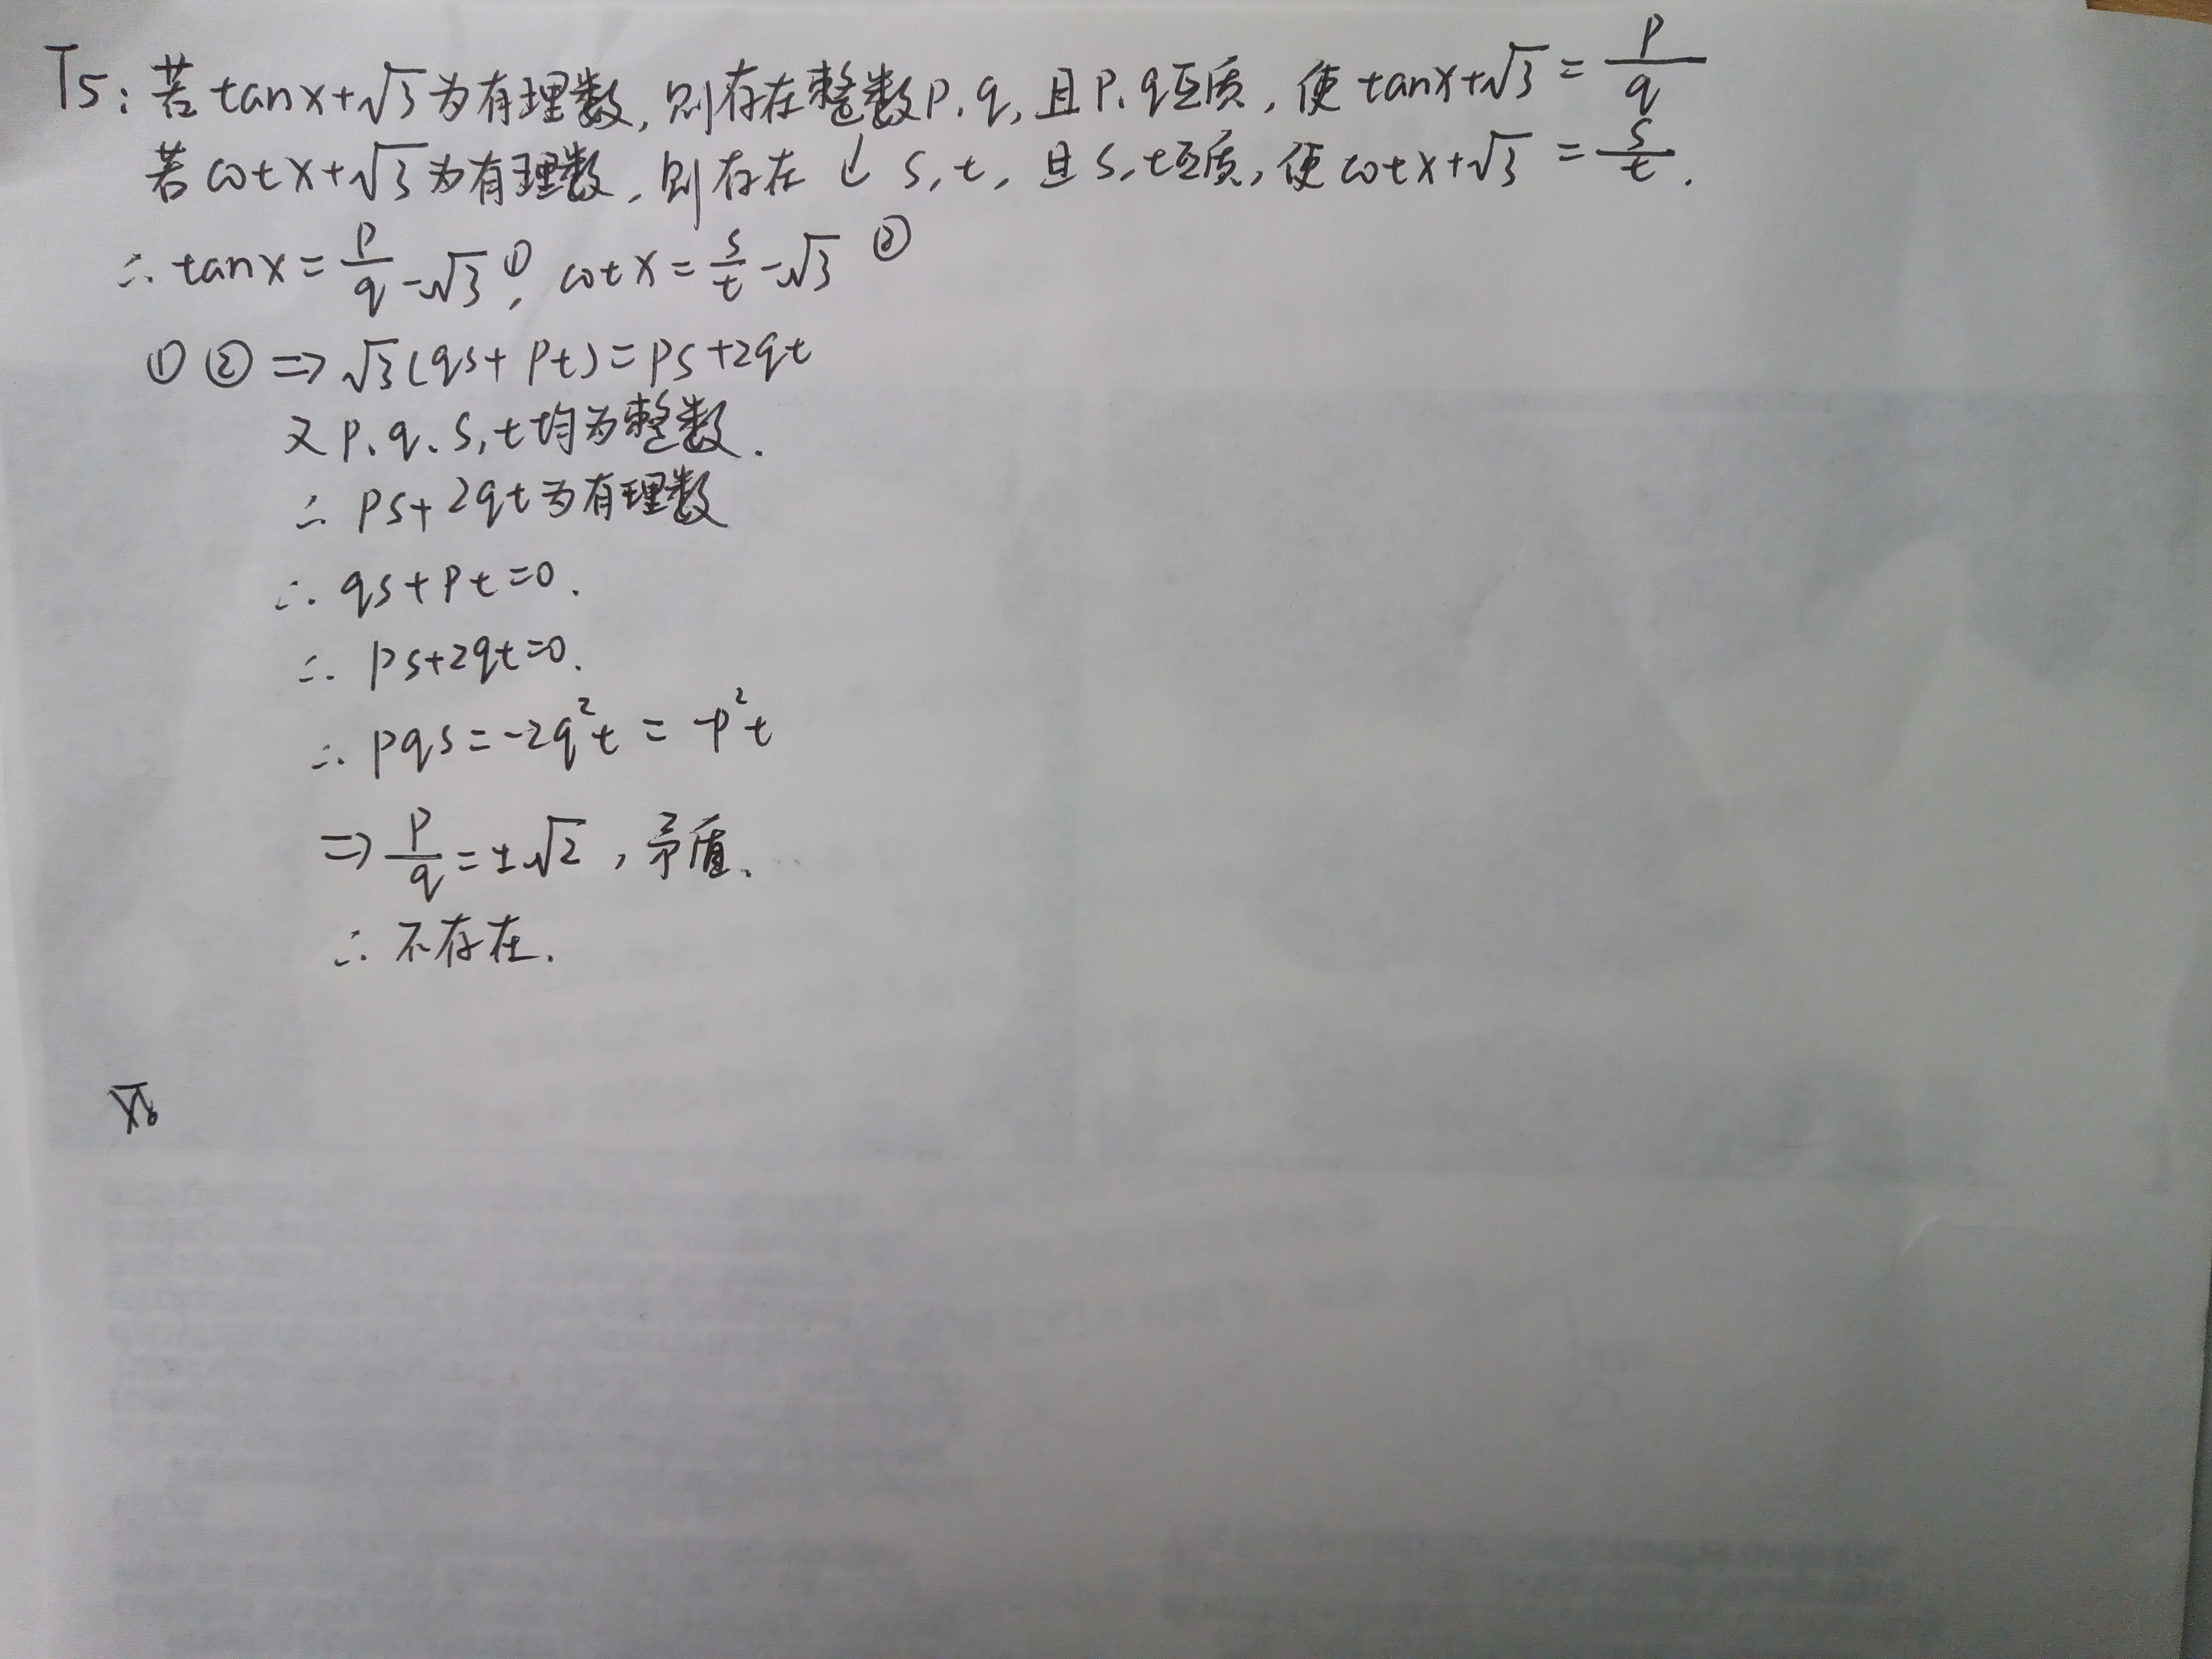 T5: 若 tanx+√3为有理数, 则存在整数p.q, 且p.q互质, 使tanx+√3 = p/q
若cotx+√3为有理数, 则存在 ↓ s,t, 且s,t互质, 使cotx+√3 = s/t.
∴ tanx = p/q - √3 ①, cotx = s/t - √3 ②
① ② ⇒ √3(qs+pt)=ps+2qt
又p.q.s,t均为整数.
∴ ps+2qt为有理数
∴ qs+pt=0.
∴ ps+2qt=0.
∴ pqs=-2q²t = -p²t
⇒ p/q = ±√2, 矛盾.
∴ 不存在.